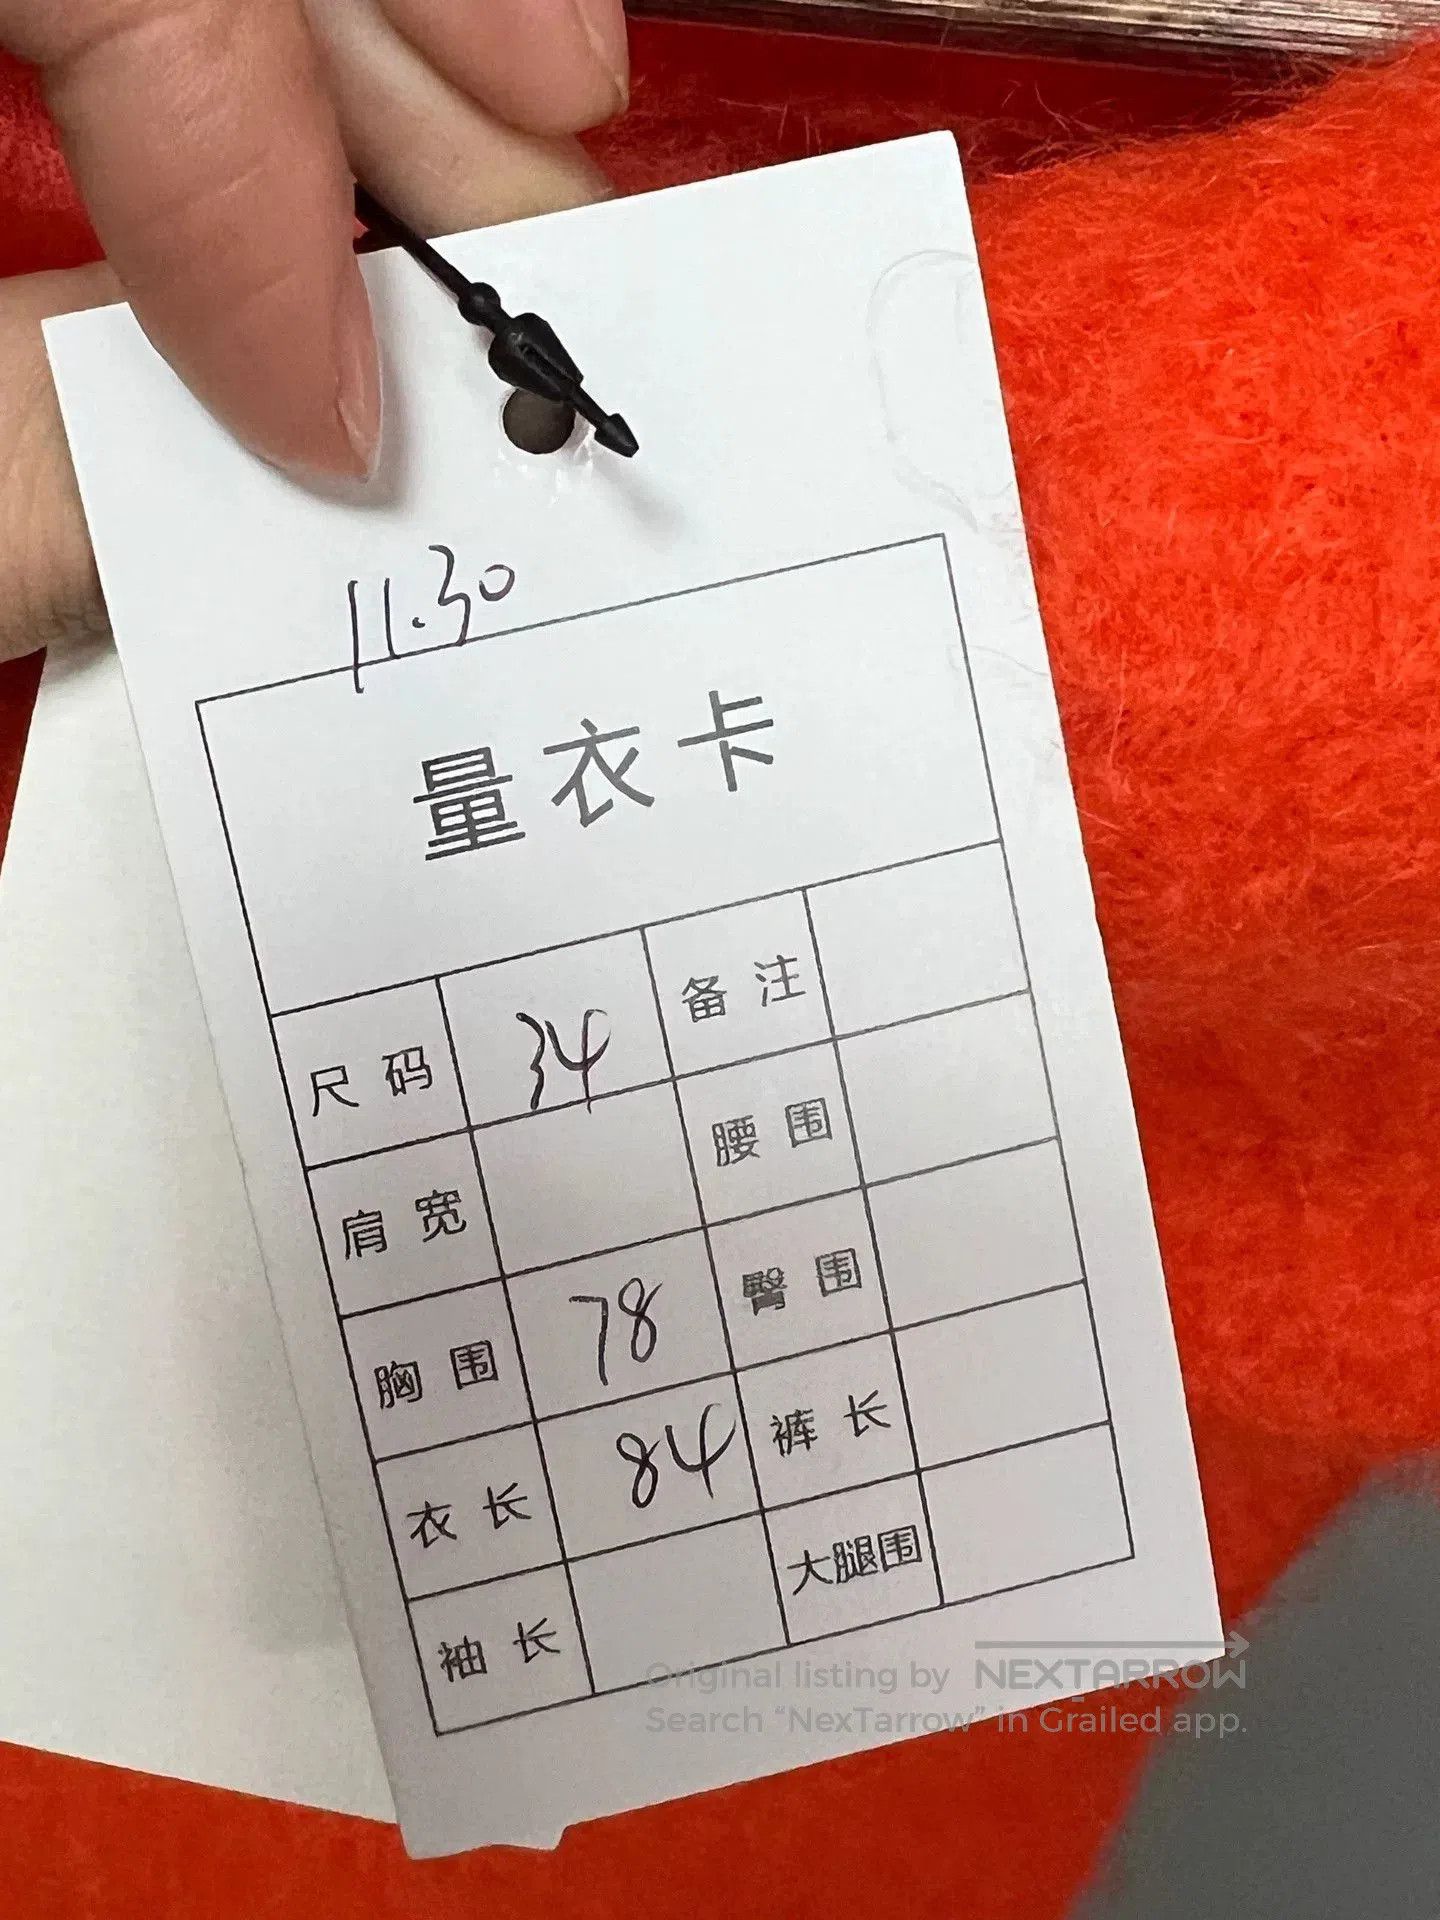 11.30
量衣卡
尺码 34 备注
肩宽 腰围
胸围 78 臀围
衣长 84 裤长
袖长 大腿围
Original listing by NEXTARROW
Search “NexTarrow” in Grailed app.